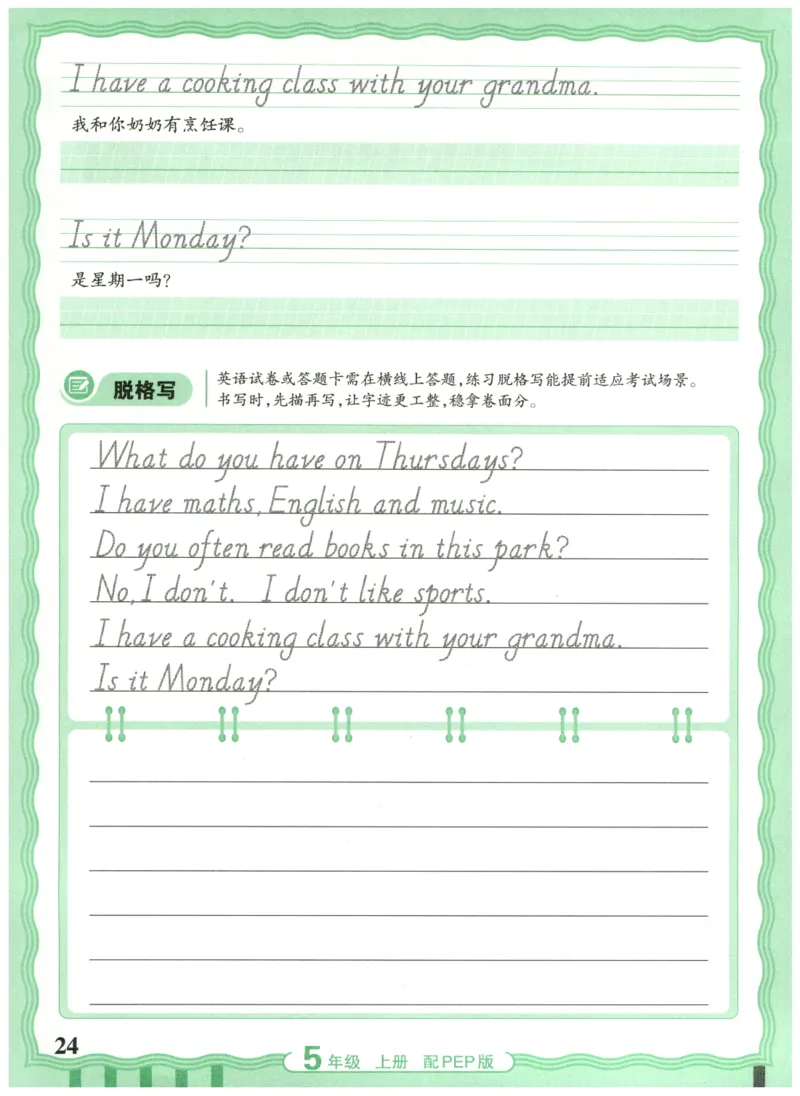 I have a cooking class with your grandma.
我和你奶奶有烹饪课。
Is it Monday?
是星期一吗?
脱格写
英语试卷或答题卡需在横线上答题,练习脱格写能提前适应考试场景。
书写时,先描再写,让字迹更工整,稳拿卷面分。
What do you have on Thursdays?
I have maths, English and music.
Do you often read books in this park?
No, I don't. I don't like sports.
I have a cooking class with your grandma.
Is it Monday?
24
5年级 上册 配PEP版